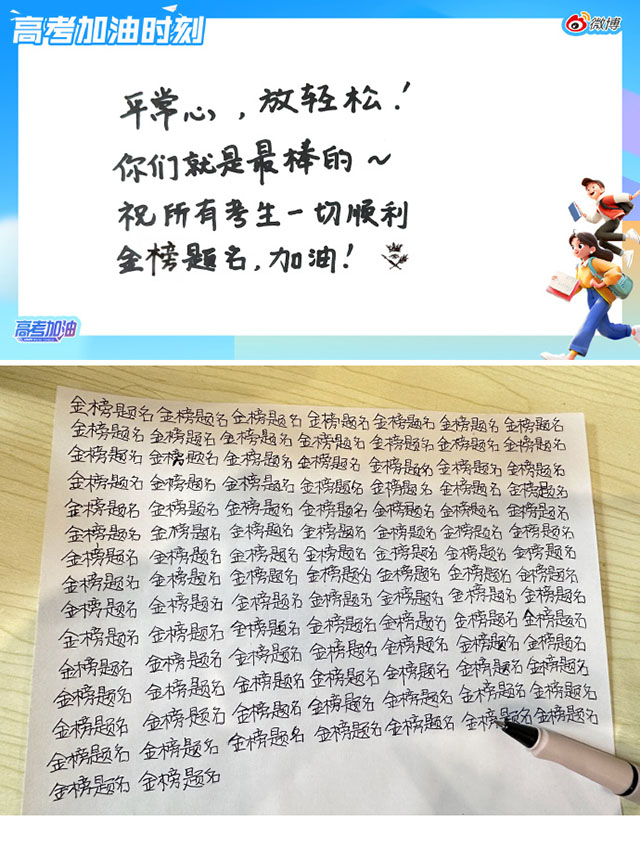 高考加油时刻
微博
平常心，放轻松！
你们就是最棒的～
祝所有考生一切顺利
金榜题名，加油！
高考加油
金榜题名 金榜题名 金榜题名 金榜题名 金榜题名 金榜题名 金榜题名
金榜题名 金榜题名 金榜题名 金榜题名 金榜题名 金榜题名 金榜题名
金榜题名 金榜题名 金榜题名 金榜题名 金榜题名 金榜题名 金榜题名
金榜题名 金榜题名 金榜题名 金榜题名 金榜题名 金榜题名 金榜题名
金榜题名 金榜题名 金榜题名 金榜题名 金榜题名 金榜题名 金榜题名
金榜题名 金榜题名 金榜题名 金榜题名 金榜题名 金榜题名 金榜题名
金榜题名 金榜题名 金榜题名 金榜题名 金榜题名 金榜题名 金榜题名
金榜题名 金榜题名 金榜题名 金榜题名 金榜题名 金榜题名 金榜题名
金榜题名 金榜题名 金榜题名 金榜题名 金榜题名 金榜题名 金榜题名
金榜题名 金榜题名 金榜题名 金榜题名 金榜题名 金榜题名 金榜题名
金榜题名 金榜题名 金榜题名 金榜题名 金榜题名 金榜题名 金榜题名
金榜题名 金榜题名 金榜题名 金榜题名 金榜题名 金榜题名 金榜题名
金榜题名 金榜题名 金榜题名 金榜题名 金榜题名 金榜题名 金榜题名
金榜题名 金榜题名 金榜题名 金榜题名 金榜题名 金榜题名 金榜题名
金榜题名 金榜题名